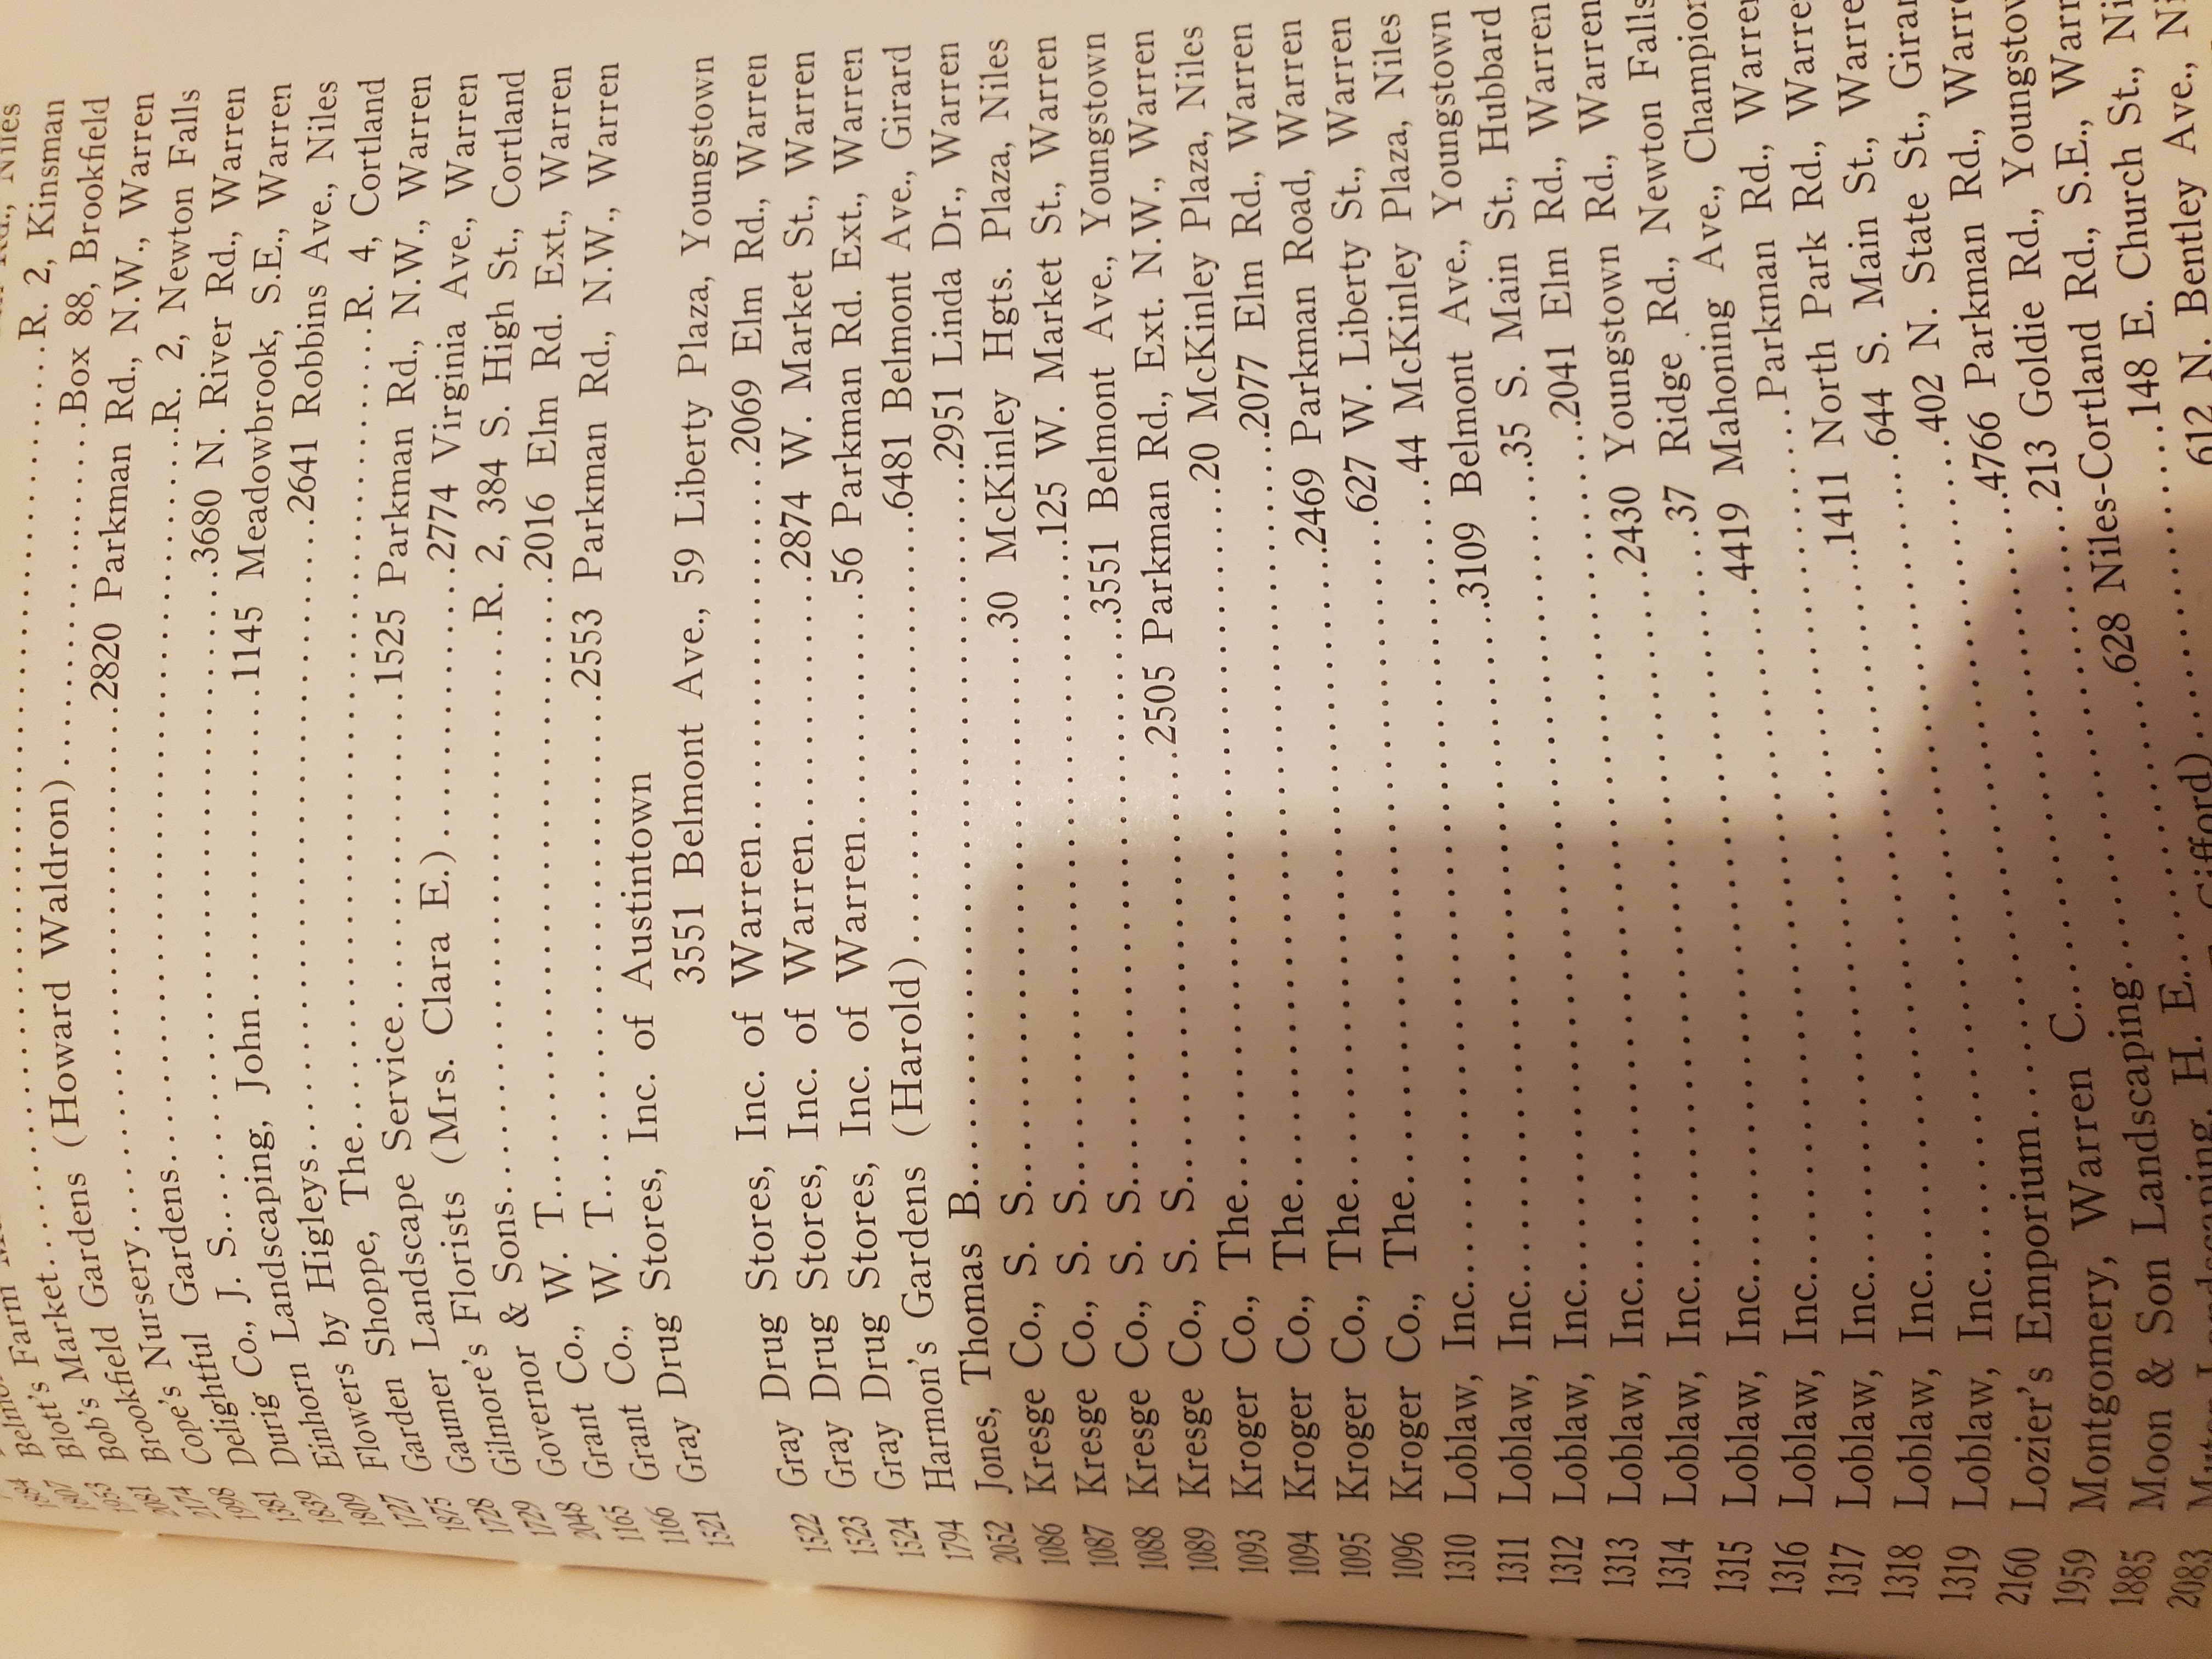 1884 Belmo
1807 Farm M
1953 Blott's Farm Rd., Niles
2081 Bob's Market..........R. 2, Kinsman
2174 Brookfield Gardens (Howard Waldron)..........Box 88, Brookfield
1998 Cope's Nursery..........2820 Parkman Rd., N.W., Warren
1381 Delightful Gardens..........R. 2, Newton Falls
1839 Durig Co., J. S...........3680 N. River Rd., Warren
1809 Einhorn Landscaping, John..........1145 Meadowbrook, S.E., Warren
1727 Flowers by Higleys..........2641 Robbins Ave., Niles
1875 Garden Shoppe, The..........R. 4, Cortland
1728 Gaumer Landscape Service..........1525 Parkman Rd., N.W., Warren
1729 Gilmore's Florists (Mrs. Clara E.)..........2774 Virginia Ave., Warren
2048 Governor & Sons..........R. 2, 384 S. High St., Cortland
1165 Grant Co., W. T...........2016 Elm Rd. Ext., Warren
1166 Grant Co., W. T...........2553 Parkman Rd., N.W., Warren
1521 Gray Drug Stores, Inc. of Austintown
3551 Belmont Ave., 59 Liberty Plaza, Youngstown
1522 Gray Drug Stores, Inc. of Warren..........2069 Elm Rd., Warren
1523 Gray Drug Stores, Inc. of Warren..........2874 W. Market St., Warren
1524 Gray Drug Stores, Inc. of Warren..........56 Parkman Rd. Ext., Warren
1794 Harmon's Gardens (Harold)..........6481 Belmont Ave., Girard
2052 Jones, Thomas B...........2951 Linda Dr., Warren
1086 Kresge Co., S. S...........30 McKinley Hgts. Plaza, Niles
1087 Kresge Co., S. S...........125 W. Market St., Warren
1088 Kresge Co., S. S...........3551 Belmont Ave., Youngstown
1089 Kresge Co., S. S...........2505 Parkman Rd., Ext. N.W., Warren
1093 Kroger Co., The..........20 McKinley Plaza, Niles
1094 Kroger Co., The..........2077 Elm Rd., Warren
1095 Kroger Co., The..........2469 Parkman Road, Warren
1096 Kroger Co., The..........627 W. Liberty St., Warren
1310 Loblaw, Inc...........44 McKinley Plaza, Niles
1311 Loblaw, Inc...........3109 Belmont Ave., Youngstown
1312 Loblaw, Inc...........35 S. Main St., Hubbard
1313 Loblaw, Inc...........2041 Elm Rd., Warren
1314 Loblaw, Inc...........2430 Youngstown Rd., Warren
1315 Loblaw, Inc...........37 Ridge Rd., Newton Falls
1316 Loblaw, Inc...........4419 Mahoning Ave., Champion
1317 Loblaw, Inc...........Parkman Rd., Warren
1318 Loblaw, Inc...........1411 North Park Rd., Warre
1319 Loblaw, Inc...........644 S. Main St., Warre
2160 Lozier's Emporium..........402 N. State St., Girar
1959 Montgomery, Warren C...........4766 Parkman Rd., Warr
1885 Moon & Son Landscaping..........213 Goldie Rd., Youngstov
2083 Muter Landscaping, H. E...........628 Niles-Cortland Rd., S.E., Warr
Gifford)..........148 E. Church St., Ni
612 N. Bentley Ave., Ni